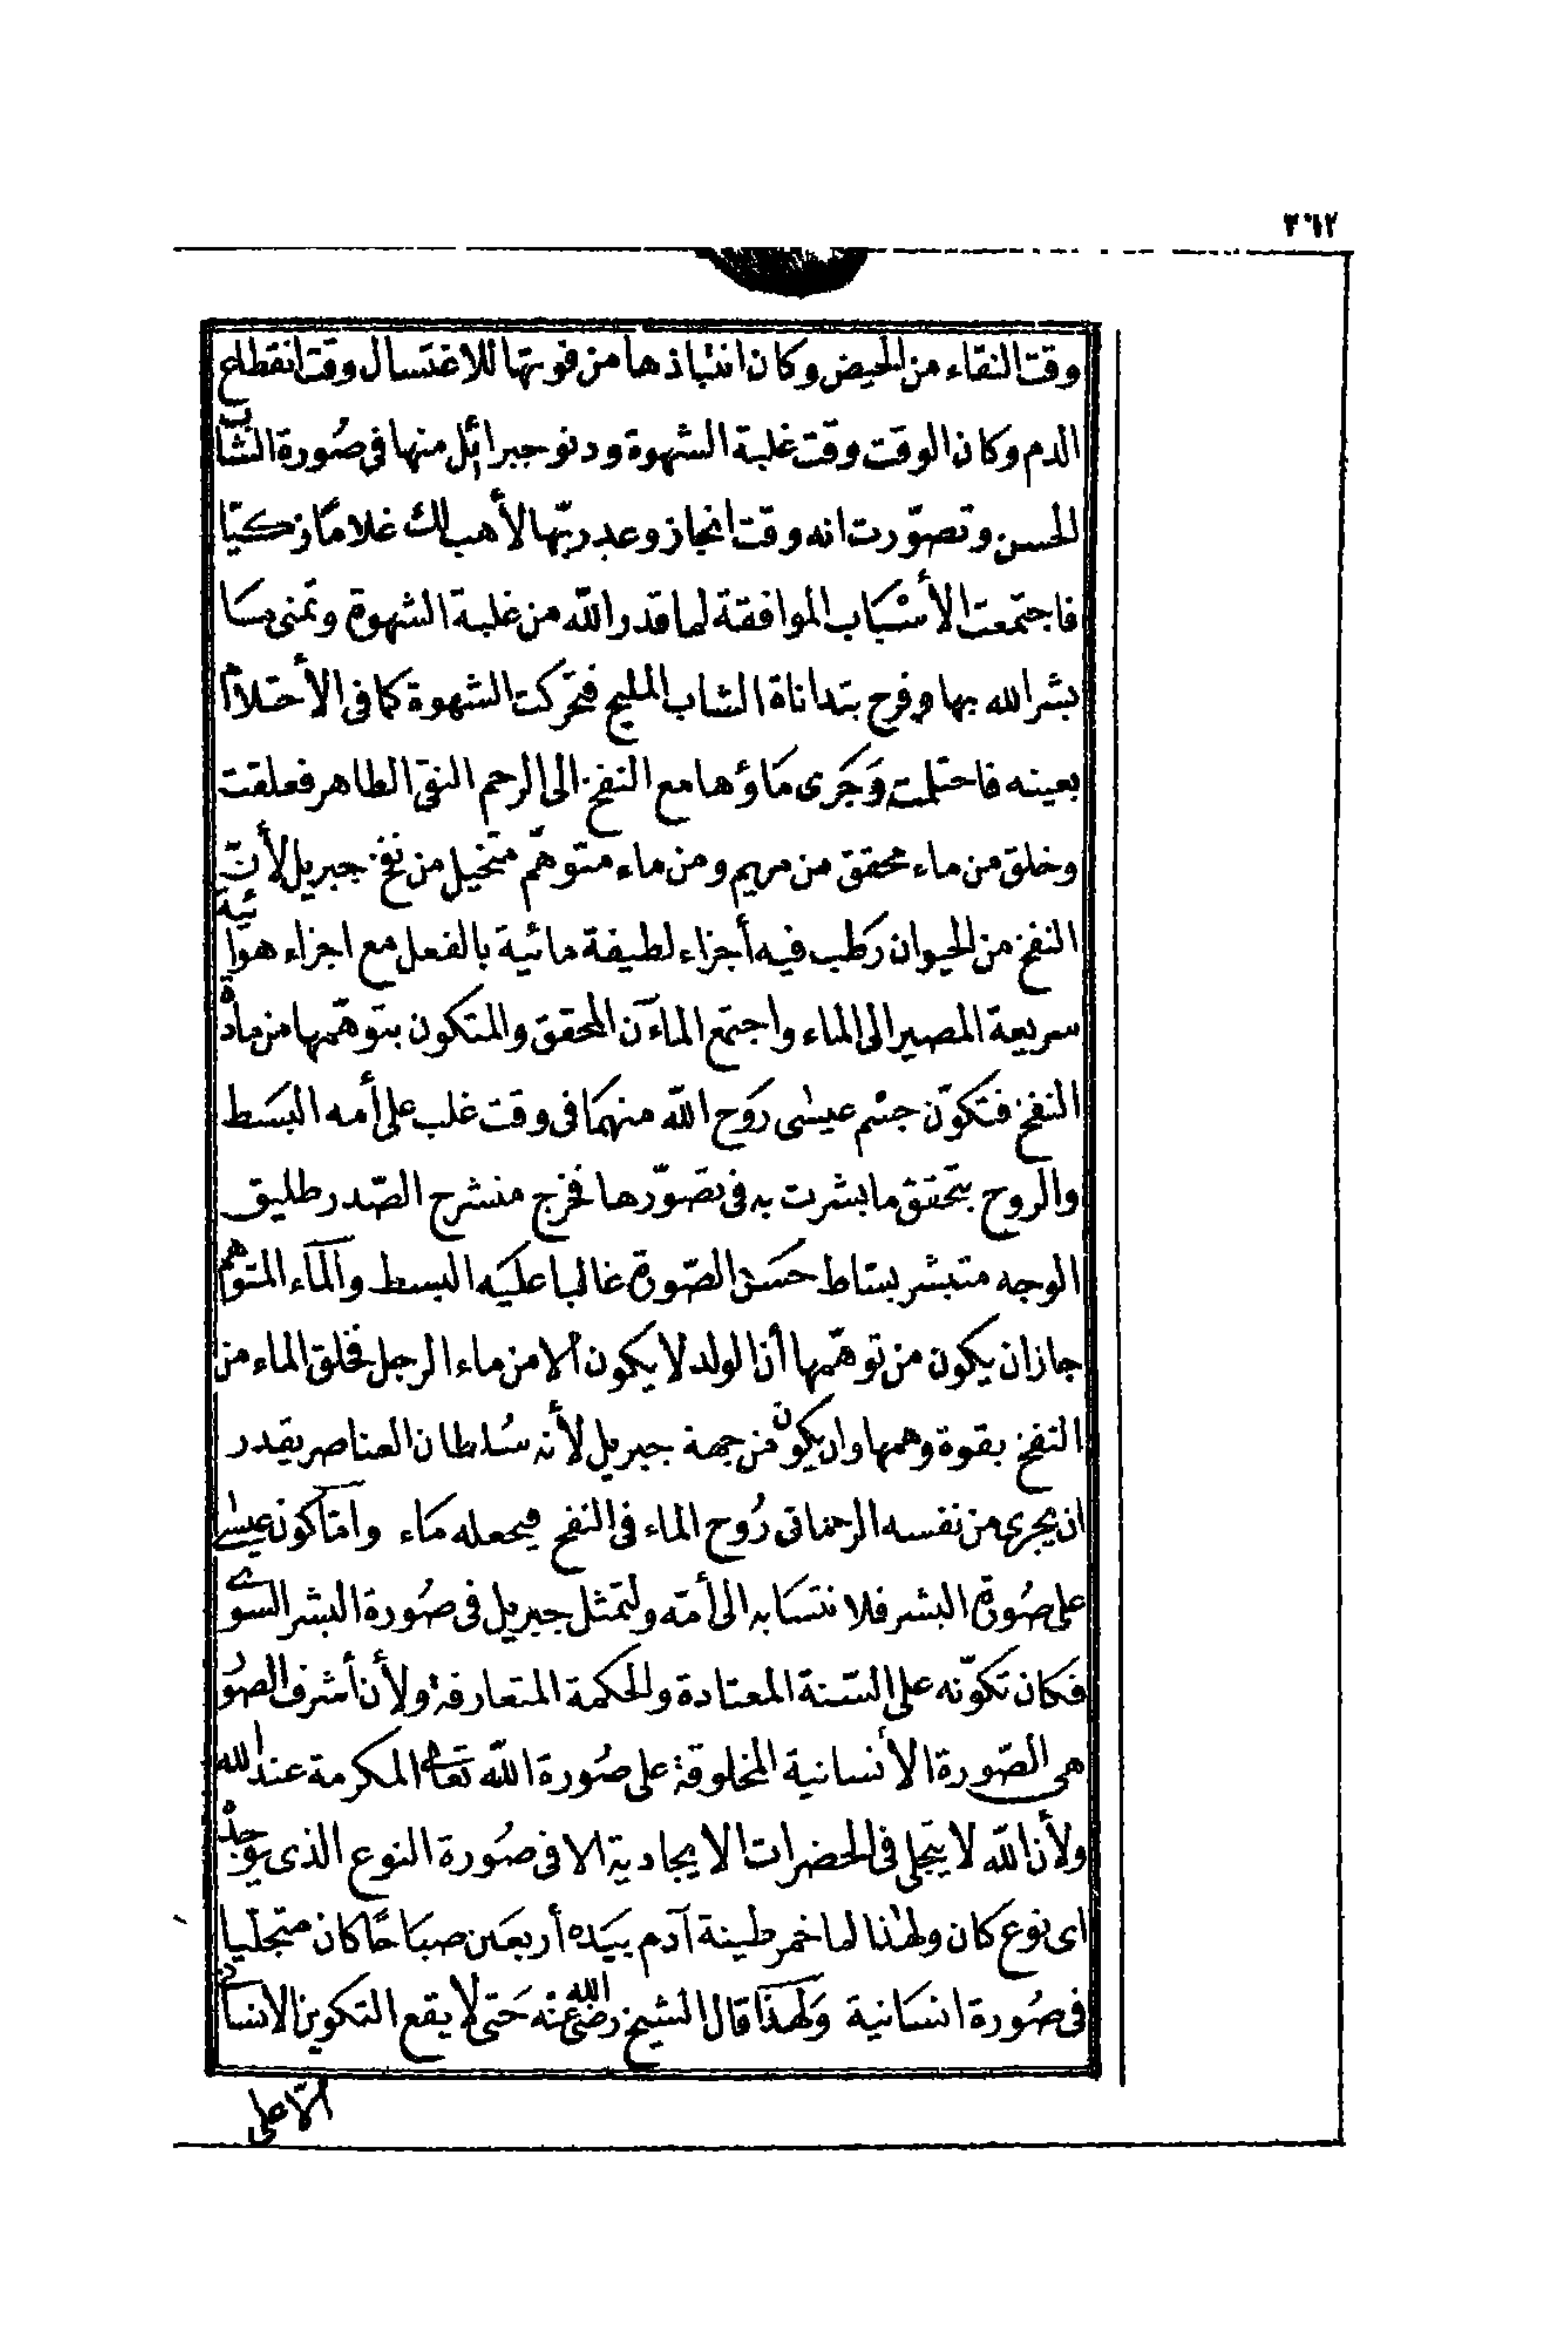 ٣٦٢
وقت النقاء من الحيض وكان انتباذها من قومها للاغتسال وقت انقطاع
الدم وكان الوقت وقت غلبة الشهوة ودنو جبرائيل منها فى صُورة الشاب
الحسن وتصوّرت انه وقت انجاز وعد ربّها لأهب لك غلامًا زكيّا
فاجتمعت الأسْبَاب الموافقة لما قدر الله من غلبة الشهوة وتمنى مسَا
بشر الله بها وفرح بتداناة الشاب المليح فتحَركت الشهوة كما فى الأحتلام
بعينه فاحتلمت وَجَرى مَاؤها مع النفخ الى الرحم النقى الطاهر فعلقت
وخلق من ماء محقق من مريم ومن ماء متوهّم متخيل من نفخ جبريل لأنّ
النفخ من الحيوان رَطب فيه أجزاء لطيفة مائية بالفعل مع اجزاء هوائية
سريعة المصير الى الماء واجتمع المآءن المحقق والمتكون بتوهّمها من مادة
النفخ فتكوّن جسْم عيسٰى رَوح الله منهمَا فى وقت غلب على أمه البسَط
والروح بتحقق ما بشرت به فى تصَوّرها فخرج منشرح الصّدر طليق
الوجه متبشر بساط حسَن الصّورة غالبا عليَه البسط والمآء المتوهم
جاز ان يكون من توهّمها أن الولد لا يكون الا من ماء الرجل فخلق الماء من
النفخ بقوة وهمها وان يكون من جهة جبريل لأنه سُلطان العناصر يقدر
ان يجرى من نفسه الرحمانى رُوح الماء فى النفخ فيجعله مَاء وامّا كون عيسٰى
على صُورة البشر فلانتسَابه الى أمّه ولتمثل جبريل فى صُورة البشر السوى
فكان تكوّنه على السّنة المعتادة والحكمة المتعارفة ولأن أشرف الصُو
هى الصّورة الأنسانية المخلوقة على صُورة الله تعَالى المكرمة عند الله
ولأن الله لا يتجلى فى الحضرات الايجادية الا فى صُورة النوع الذى يوجد
اى نوع كان ولهٰذا لما خمر طينة آدم بيَده أربعَين صبَاحًا كان متجلّيا
فى صُورة انسَانية وَلهذَا قال الشيخ رضى الله عنه حَتى لا يقع التكوين الانسانى
الّا على